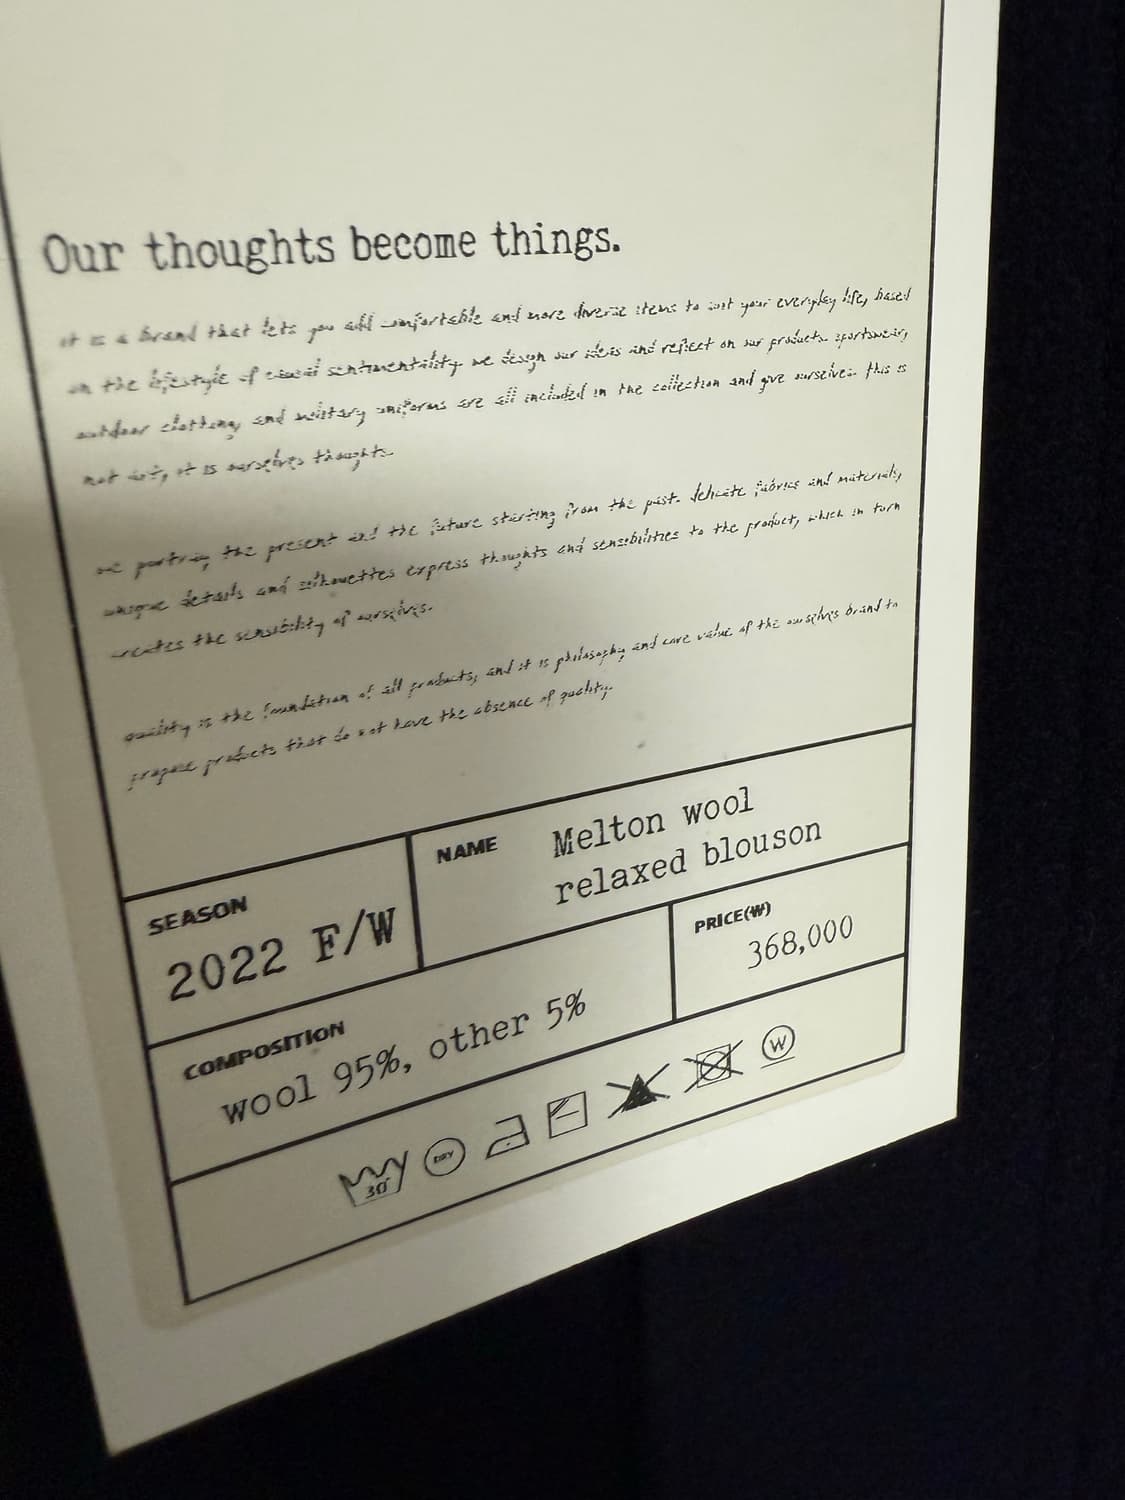 Our thoughts become things.
it is a brand that lets you add comfortable and more diverse items to suit your everyday life, based
on the lifestyle of casual sentimentality. we design our ideas and reflect on our products. sportswear,
outdoor clothing, and military uniforms are all included in the collection and give ourselves. this is
not art, it is ourselves thoughts.
we portray the present and the future starting from the past. delicate fabrics and materials,
unique details and silhouettes express thoughts and sensibilities to the product, which in turn
creates the sensibility of ourselves.
quality is the foundation of all products, and it is philosophy and core value of the ourselves brand to
propose products that do not have the absence of quality.
SEASON
2022 F/W
NAME
Melton wool
relaxed blouson
COMPOSITION
wool 95%, other 5%
PRICE(₩)
368,000
30
DRY
W